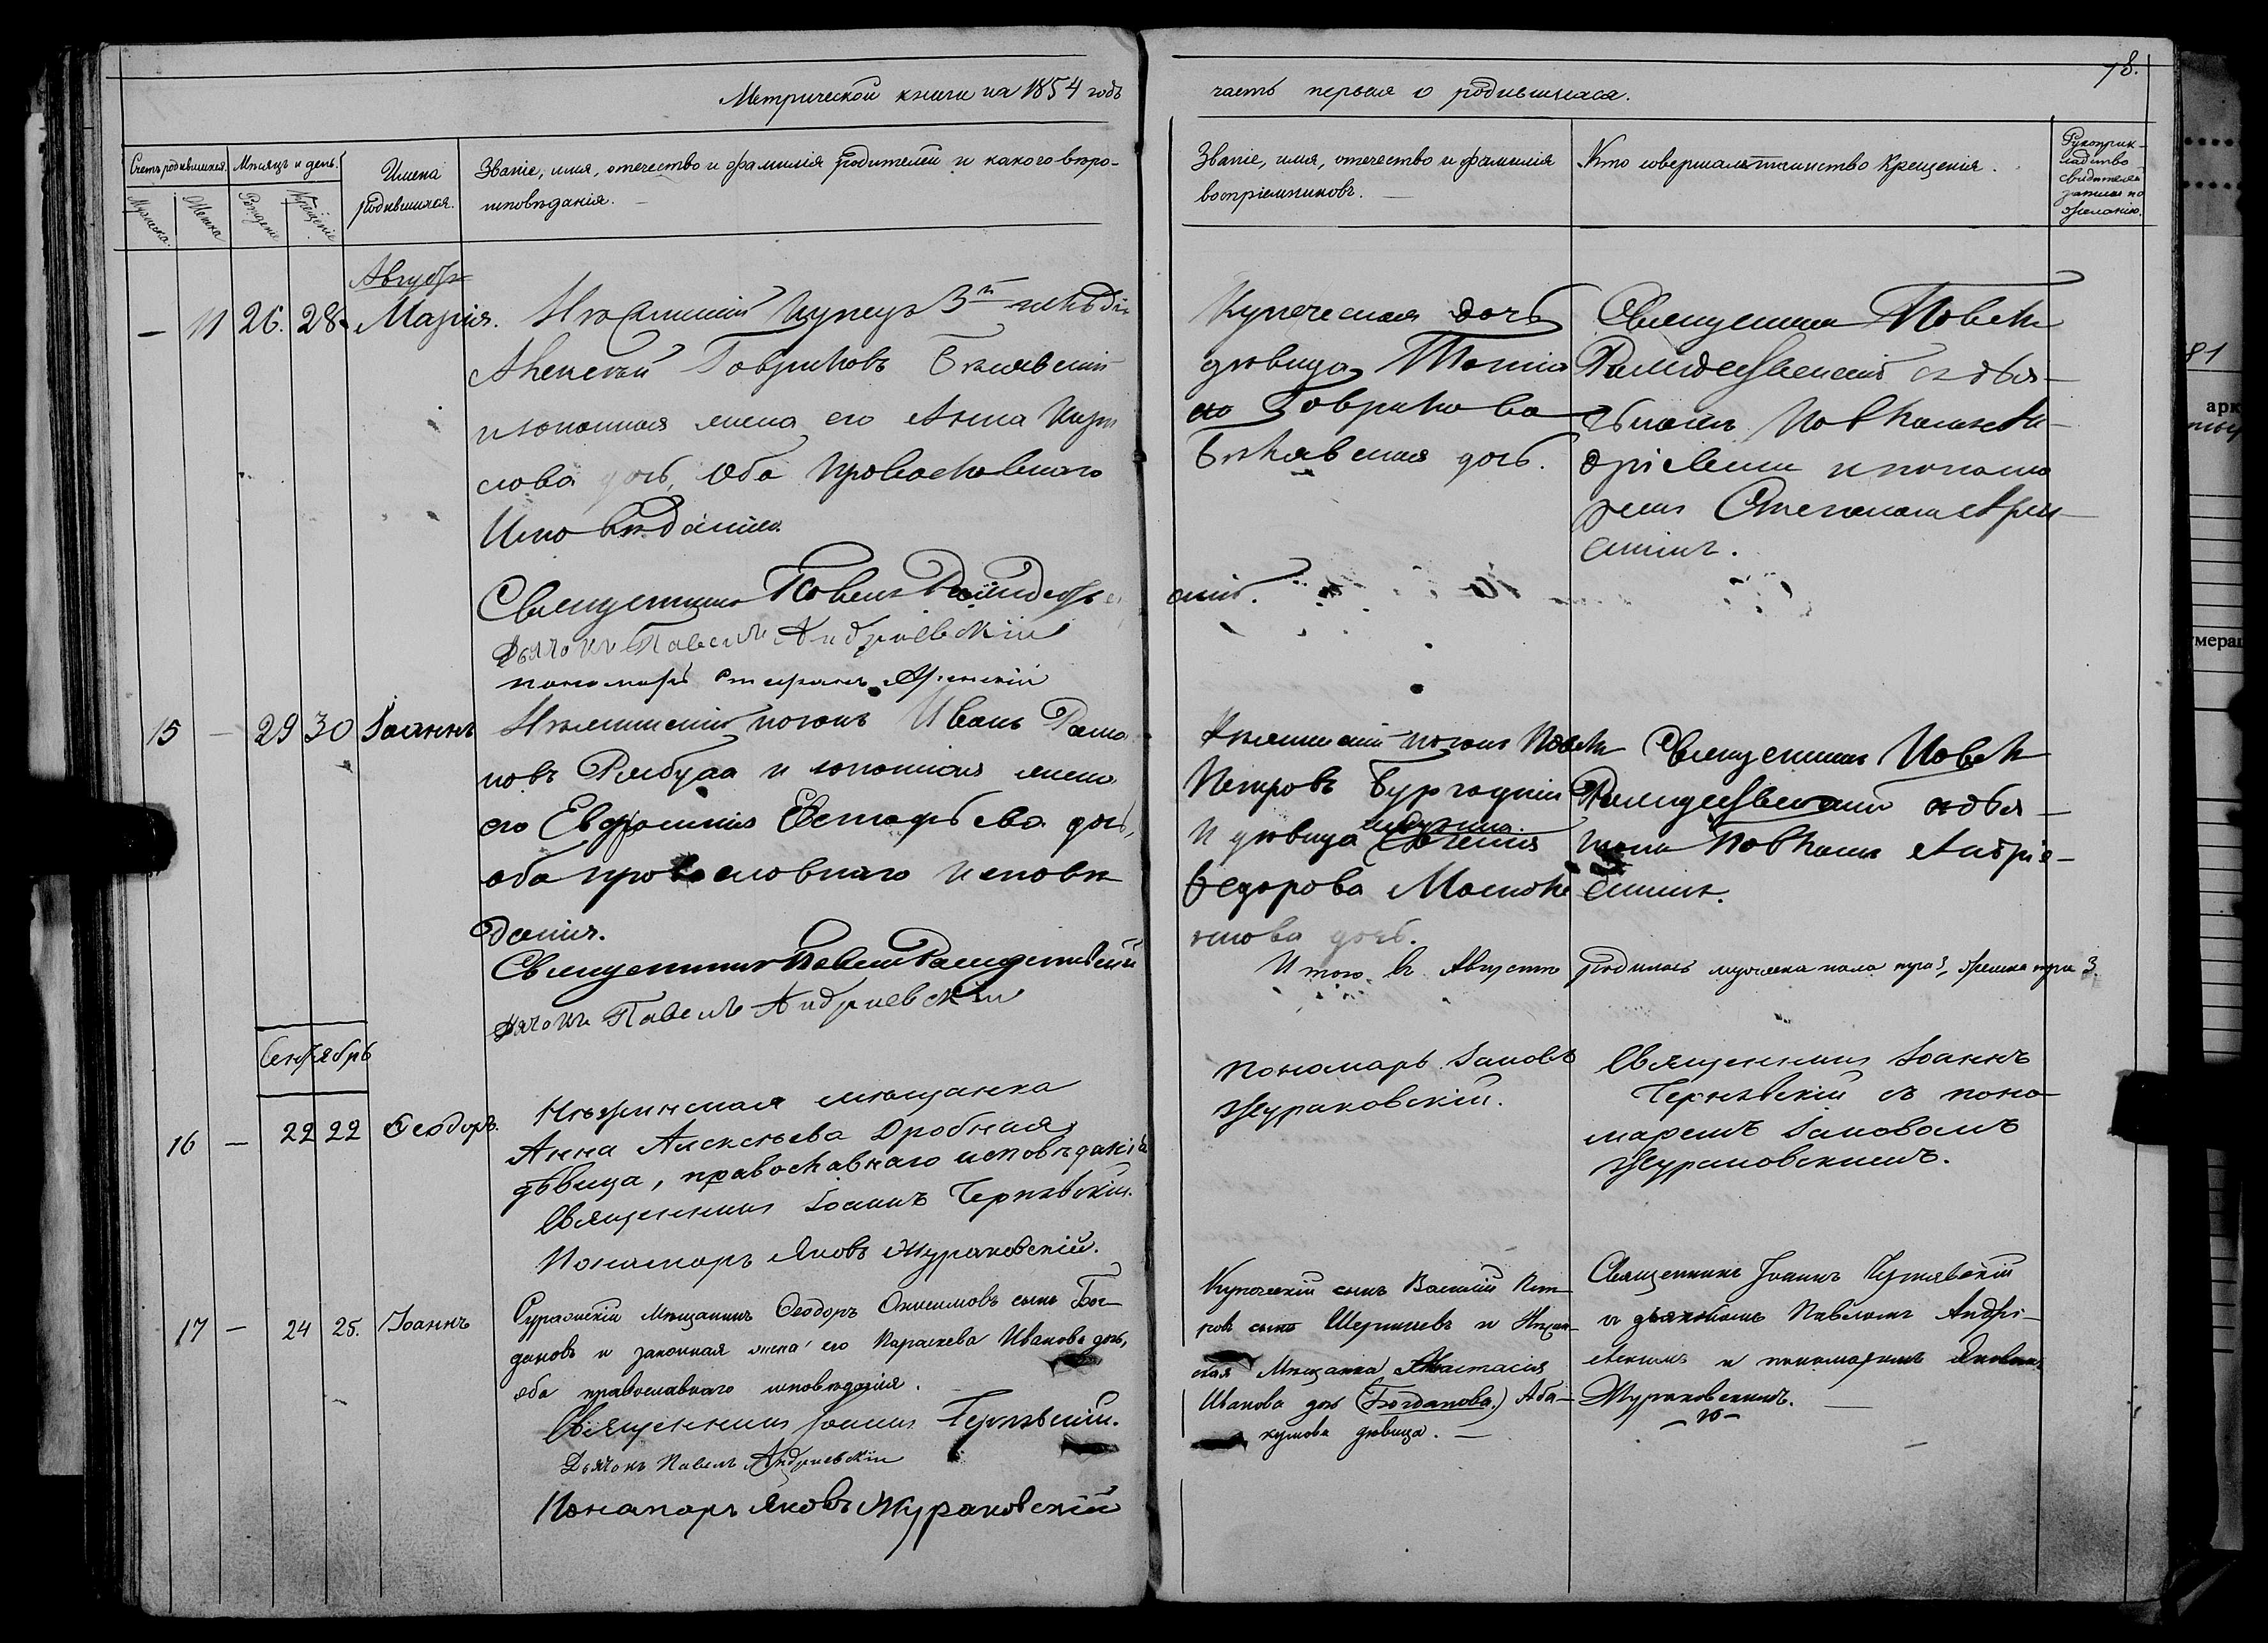 78.
Метрической книги на 1854 годъ
часть первая о родившихся.
Счетъ родившихся.
Мѣсяцъ и день.
Имена родившихся.
Званіе, имя, отечество и фамилія родителей и какого вѣро-
исповѣданія.
Мужеска.
Женска
Рожденіе
Крещеніе
Званіе, имя, отечество и фамилія
воспріемниковъ.
Кто совершалъ таинство Крещенія.
Рукоприк-
ладство
свидѣтелей
записи по
желанію.
Августъ
— 11 26. 28. Марія.
Нѣжинскій Купецъ 3й гильдіи
Алексѣй Гавриловъ Бѣлявскій
и законная жена его Анна
дочь, оба Православнаго
Исповѣданія.
Священникъ Павелъ Рождественскій.
Дьячокъ Павелъ Андріевскій
пономарь Стефанъ
Купеческая дочь
дѣвица
Гаврилова
Бѣлявская дочь.
Священникъ Павелъ
Рождественскій съ дья-
чкомъ Павломъ Ан-
дріевскимъ и понома
ремъ Стефаномъ
скимъ.
15 — 29 30 Іоаннъ
Нѣжинскій Иванъ Рома
новъ и законная жена
его Евфросинія Евстафьева дочь,
оба православнаго исповѣ
данія.
Священникъ Павелъ Рождественскій
Дьячокъ Павелъ Андріевскій
Нѣжинскій Павелъ
Петровъ
и дѣвица
Федорова
дочь.
Священникъ Павелъ
Рождественскій съ дья-
чкомъ Павломъ Андріе-
вскимъ.
Итого въ Августѣ родилось мужеска пола 3, женска 3.
Сентябрь
16 — 22 22 Ѳеодоръ.
Нѣжинская мѣщанка
Анна Алексѣева Дробная,
дѣвица, православнаго исповѣданія
Священникъ Іоаннъ Чернявскій.
Пономарь Яковъ Жураковскій.
Пономарь Іаковъ
Жураковскій.
Священникъ Іоаннъ
Чернявскій съ поно
маремъ Іаковомъ
Жураковскимъ.
17 — 24 25. Іоаннъ
Мѣщанинъ Ѳеодоръ Онисимовъ сынъ Бог-
дановъ и законная жена его Параскева Иванова дочь,
оба православнаго исповѣданія.
Священникъ Іоаннъ Чернявскій.
Дьячокъ Павелъ Андріевскій
Пономарь Яковъ Жураковскій
Купеческій сынъ Василій Пет-
ровъ сынъ и Нѣжин-
ская Мѣщанка Анастасія
Иванова дочь (Богданова.) Аба-
кумова дѣвица. —
Священникъ Іоаннъ Чернявскій
съ дьячкомъ Павломъ Андрі-
евскимъ и пономаремъ Яковомъ
Жураковскимъ. —